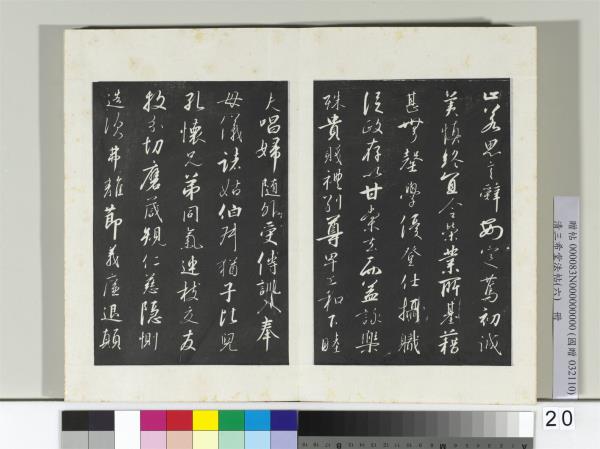 止若思言辭安定篤初誠
美慎終宜令榮業所基藉
甚無罄學優登仕攝職
從政存以甘棠去而益詠樂
殊貴賤禮別尊卑上和下睦
夫唱婦隨外受傅訓入奉
母儀諸姑伯叔猶子比兒
孔懷兄弟同氣連枝交友
投分切磨箴規仁慈隱惻
造次弗離節義廉退顛
贈帖 000083N000000000 (國贈 032110)
清三希堂法帖(六) 冊
20